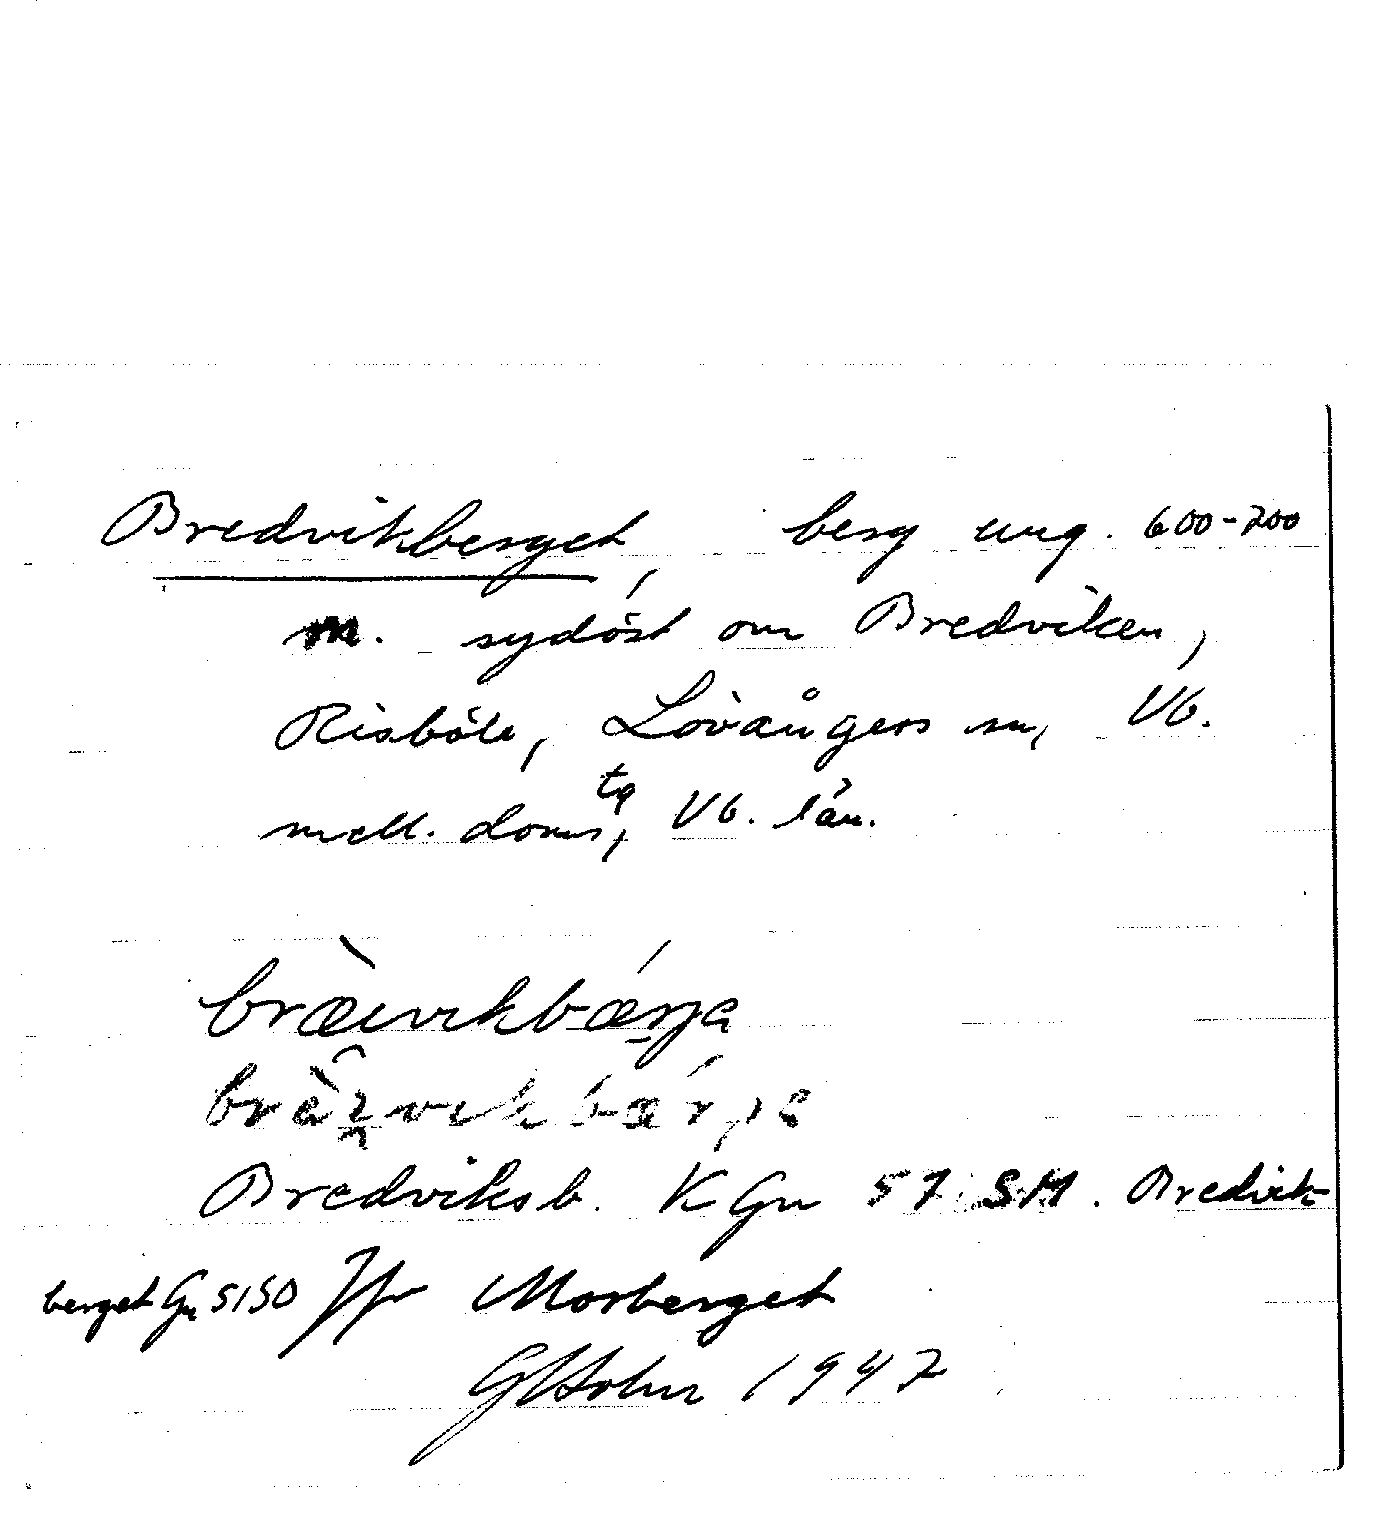 Bredvikberget, berg ung. 600-700
m. sydöst om Bredviken,
Risböle, Lövångers sn, Vb.
mell. doms tg, Vb. län.
bræ̀ıvıkbǽrje
Bredviksb. K Gu 57 SM. Bredvik-
berget Gu 5150 Jfr Morberget
GHolm 1947